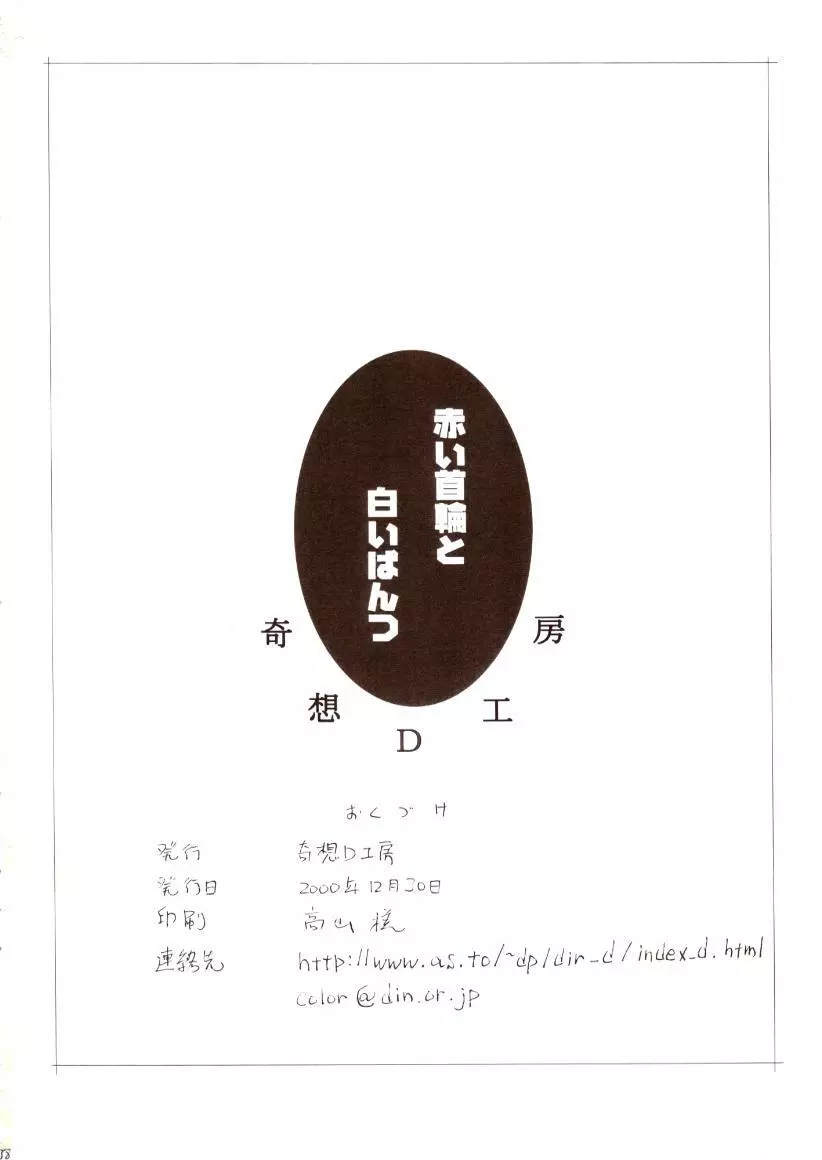 赤い首輪と
白いぱんつ
奇想D工房
おくづけ
発行 奇想D工房
発行日 2000年12月30日
印刷 高山様
連絡先 http://www.as.to/~dp/dir_d/index_d.html
color@din.or.jp
58